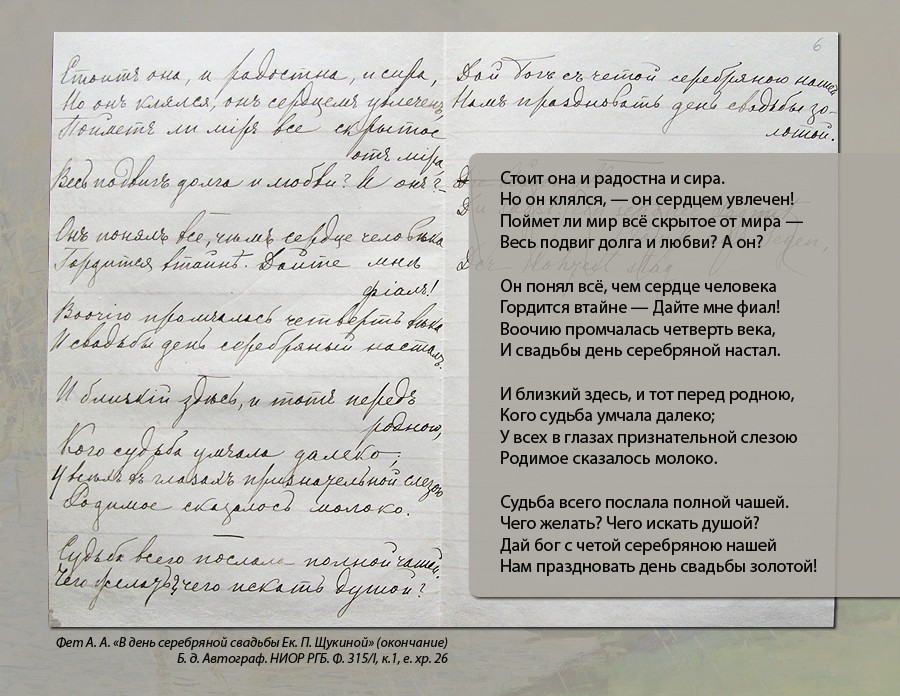 6
Стоитъ она, и радостна, и сира,
Но онъ клялся, онъ сердцемъ увлеченъ,
Пойметъ ли міръ все скрытое
отъ міра,
Весь подвигъ долга и любви? А онъ?
Онъ понялъ все, чѣмъ сердце человѣка
Гордится втайнѣ. Дайте мнѣ
фіалъ!
Воочію промчалась четверть вѣка
И свадьбы день серебряный насталъ.
И близкій здѣсь, и тотъ передъ
родною,
Кого судьба умчала далеко;
У всѣхъ въ глазахъ признательной слезою
Родимое сказалось молоко.
Судьба всего послала полной чашей.
Чего желать? чего искать душой?
Дай Богъ съ четой серебряною нашей
Намъ праздновать день свадьбы зо-
лотой.
Стоит она и радостна и сира.
Но он клялся, — он сердцем увлечен!
Поймет ли мир всё скрытое от мира —
Весь подвиг долга и любви? А он?
Он понял всё, чем сердце человека
Гордится втайне — Дайте мне фиал!
Воочию промчалась четверть века,
И свадьбы день серебряной настал.
И близкий здесь, и тот перед родною,
Кого судьба умчала далеко;
У всех в глазах признательной слезою
Родимое сказалось молоко.
Судьба всего послала полной чашей.
Чего желать? Чего искать душой?
Дай бог с четой серебряною нашей
Нам праздновать день свадьбы золотой!
Фет А. А. «В день серебряной свадьбы Ек. П. Щукиной» (окончание)
Б. д. Автограф. НИОР РГБ. Ф. 315/I, к.1, е. хр. 26